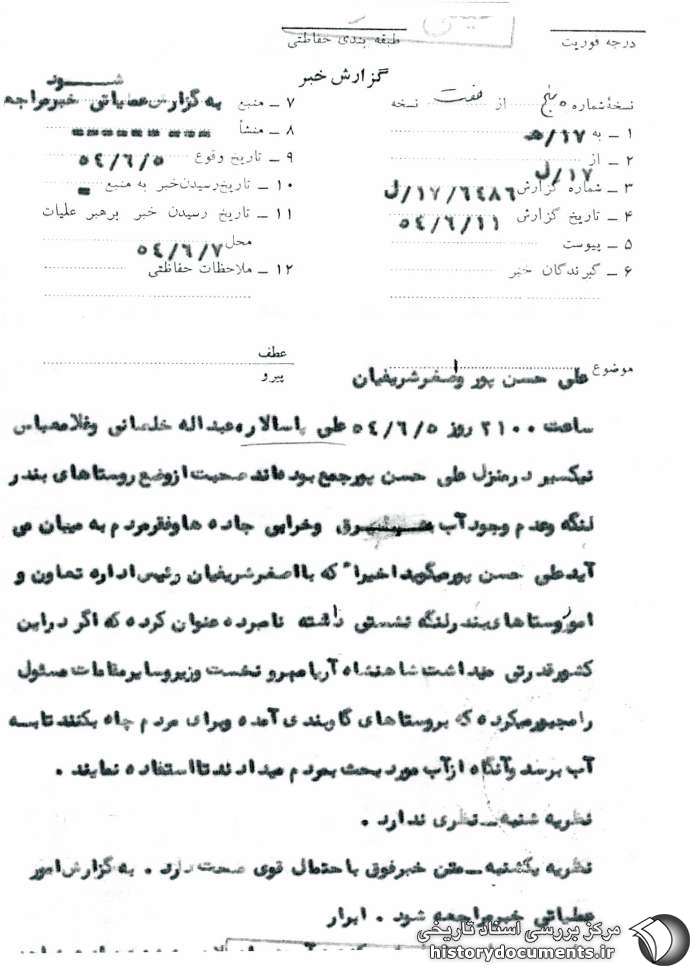 درجه فوریت
طبقه بندی حفاظتی
گزارش خبر
نسخهٔ شماره ۵ پنج از هفت نسخه
۱ ـ به ۱۷/ه
۲ ـ از ۱۷/ل
۳ ـ شماره گزارش ۶۴۸۶/۱۷/ل
۴ ـ تاریخ گزارش ۵۴/۶/۱۱
۵ ـ پیوست
۶ ـ گیرندگان خبر
۷ ـ منبع به گزارش عملیاتی خبر مراجعه شود
۸ ـ منشأ
۹ ـ تاریخ وقوع ۵۴/۶/۵
۱۰ ـ تاریخ رسیدن خبر به منبع ـ
۱۱ ـ تاریخ رسیدن خبر برهبر عملیات
محل ۵۴/۶/۷
۱۲ ـ ملاحظات حفاظتی
موضوع علی حسن پور واصغر شریفیان
عطف
پیرو
ساعت ۲۱۰۰ روز ۵۴/۶/۵ علی پاسالار، عبداله خلصانی وغلامعباس
نیکسیر در منزل علی حسن پور جمع بوده اند صحبت از وضع روستاهای بندر
لنگه وعدم وجود آب برق وخرابی جاده ها وفقر مردم به میان می
آید علی حسن پور میگوید اخیرا" که با اصغر شریفیان رئیس اداره تعاون و
امور روستاهای بندر لنگه نشستی داشته نامبرده عنوان کرده که اگر در این
کشور قدرتی میداشت شاهنشاه آریامهر و نخست وزیر و سایر مقامات مسئول
را مجبور میکرده که بروستاهای گاوبندی آمده وبرای مردم چاه بکنند تا به
آب برسد وآنگاه از آب مورد بحث بمردم میدادند تا استفاده نمایند .
نظریه شنبه ـ نظری ندارد .
نظریه یکشنبه ـ متن خبر فوق با احتمال قوی صحت دارد . به گزارش امور
عملیاتی خبر مراجعه شود . ابرار
مرکز بررسی اسناد تاریخی
historydocuments.ir